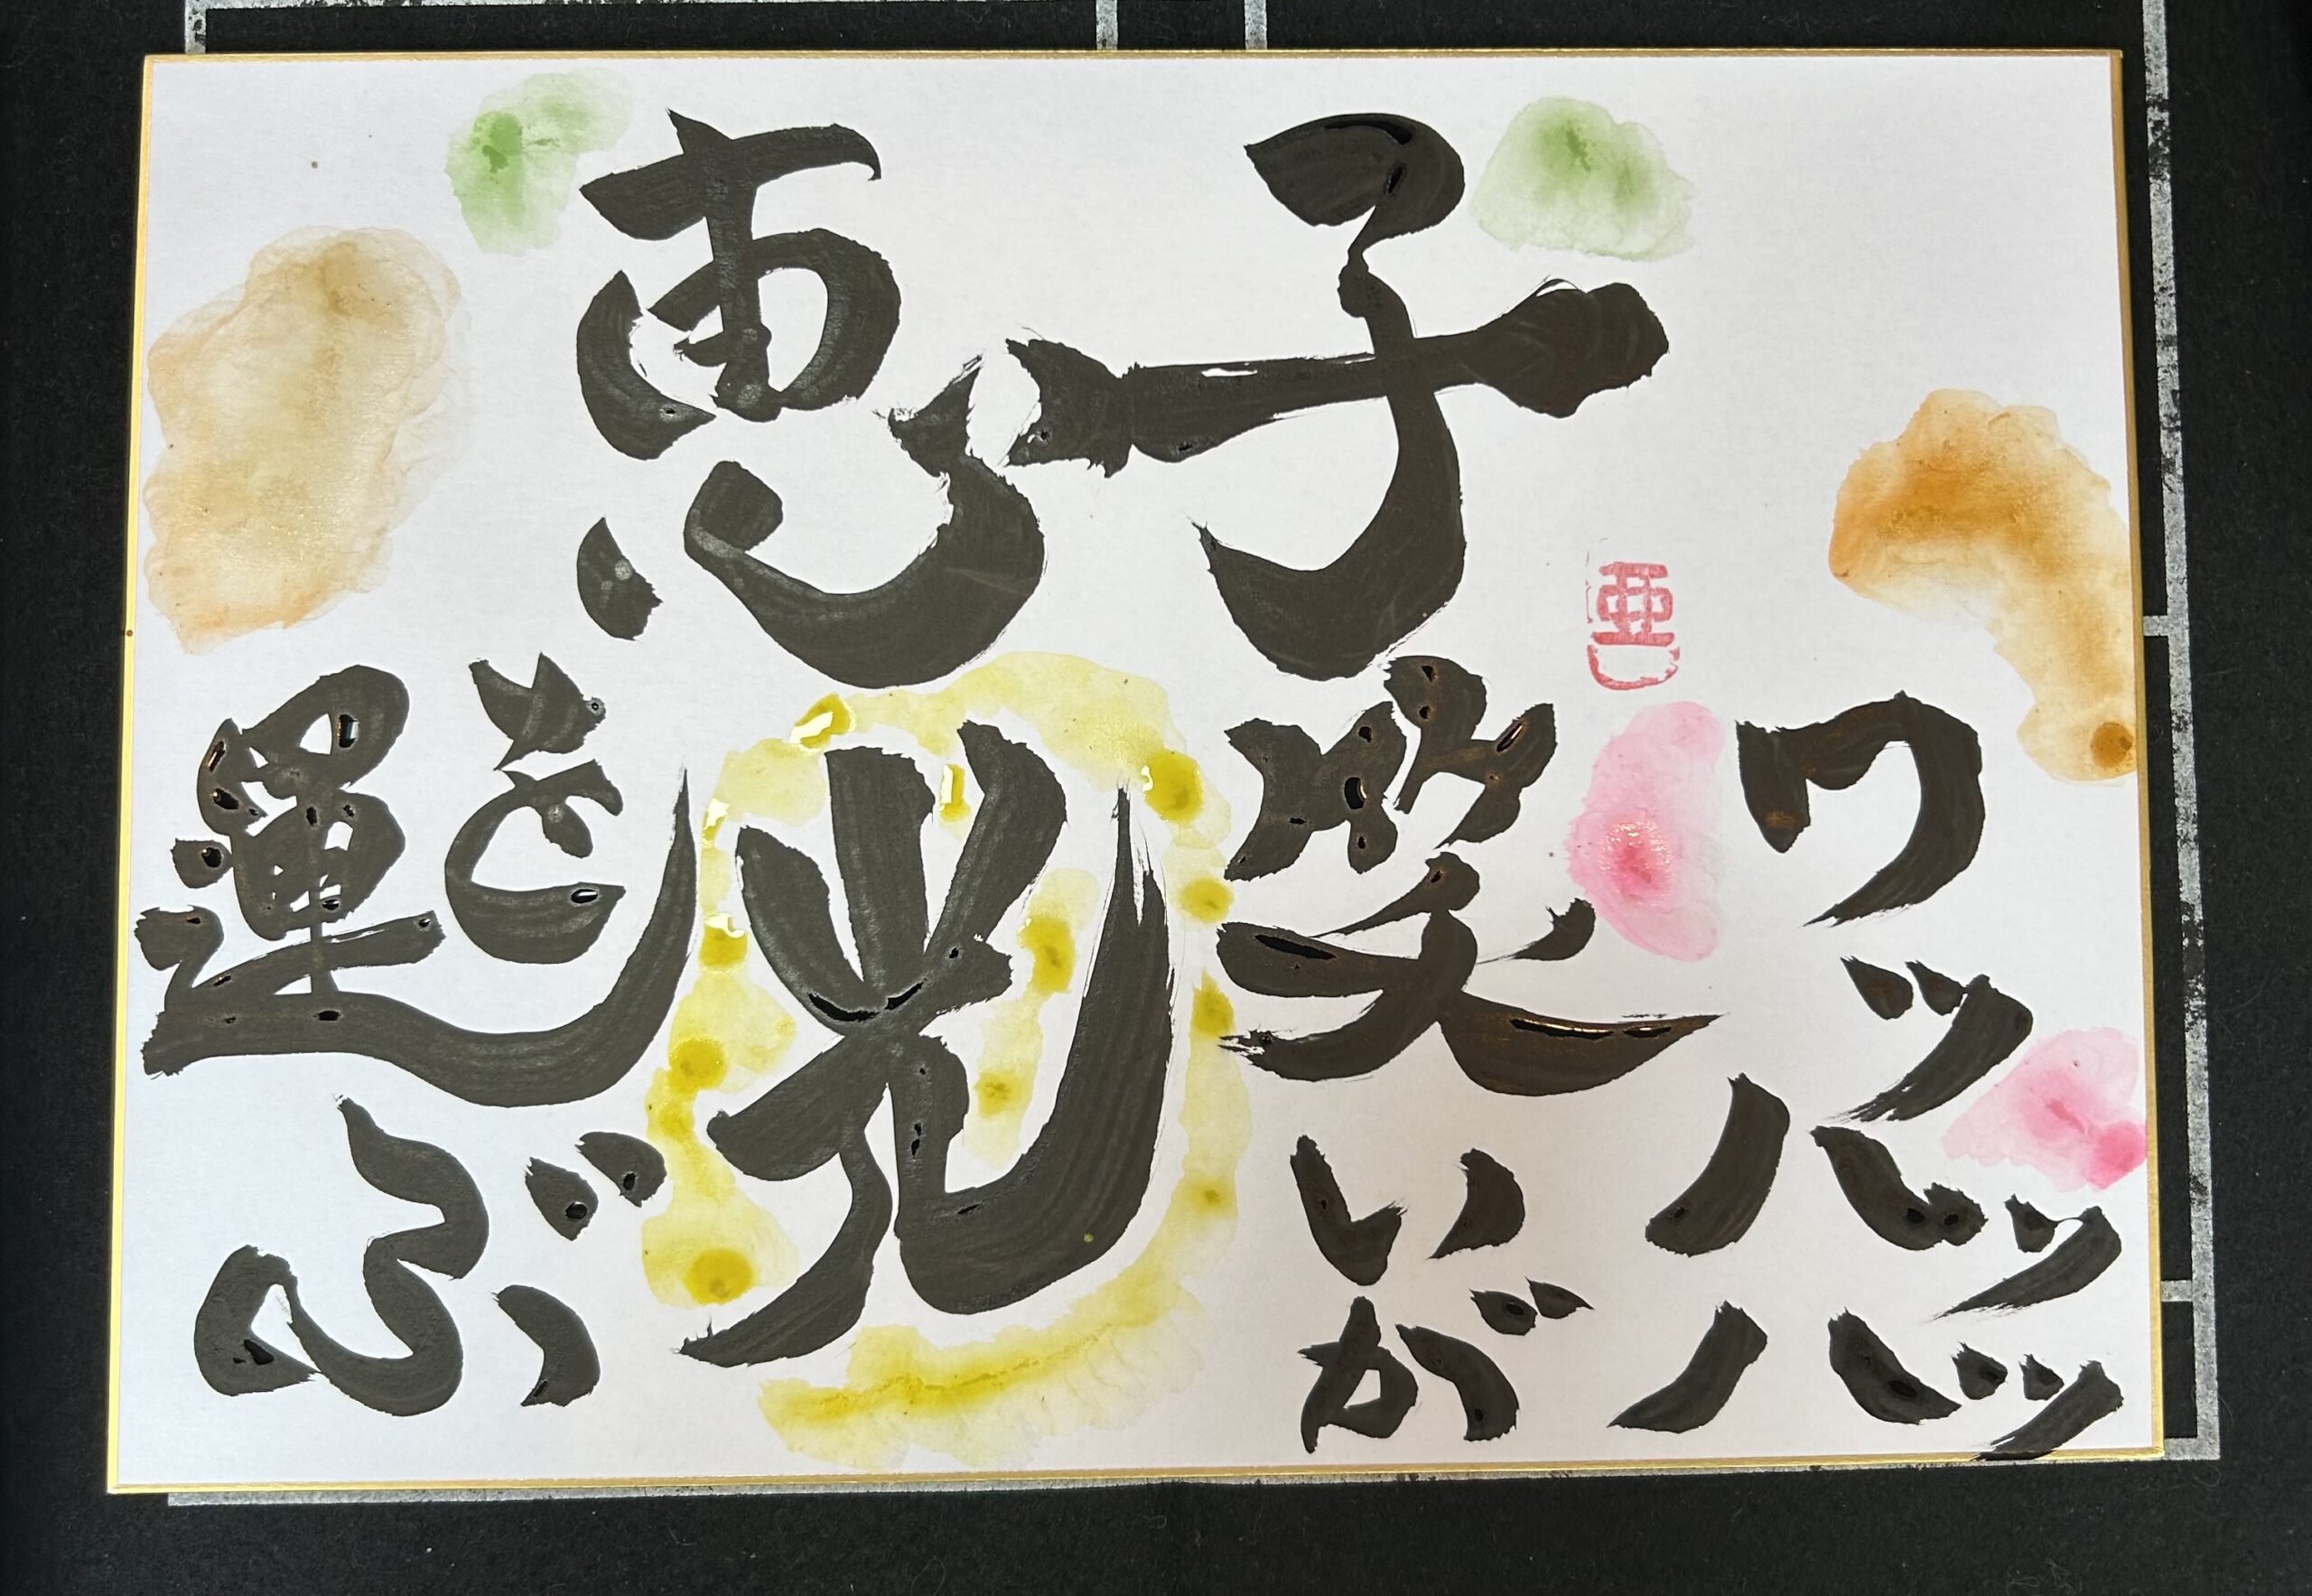 恵子
ワッハッハッ
笑いが
光を
運ぶ
亜